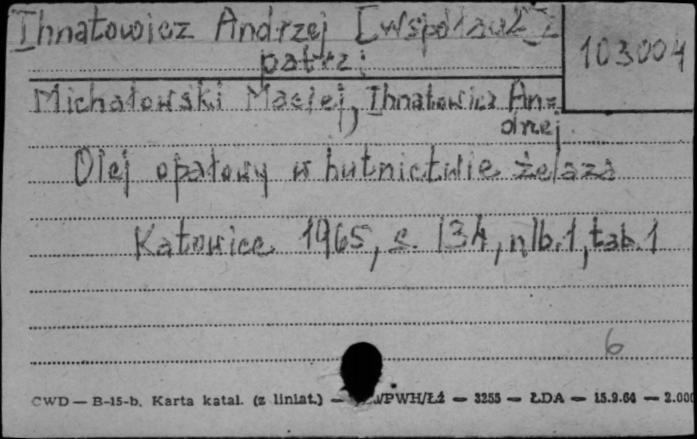 Ihnatowicz Andrzej [współaut.]
103004
patrz:
Michałowski Maciej, Ihnatowicz An=
drzej
Olej opałowy w hutnictwie żelaza
Katowice 1965, s. 134, nlb. 1, tab. 1
6
CWD — B-15-b. Karta katal. (z liniat.) — /PWH/Łź — 3255 — ŁDA — 15.9.64 — 2.000